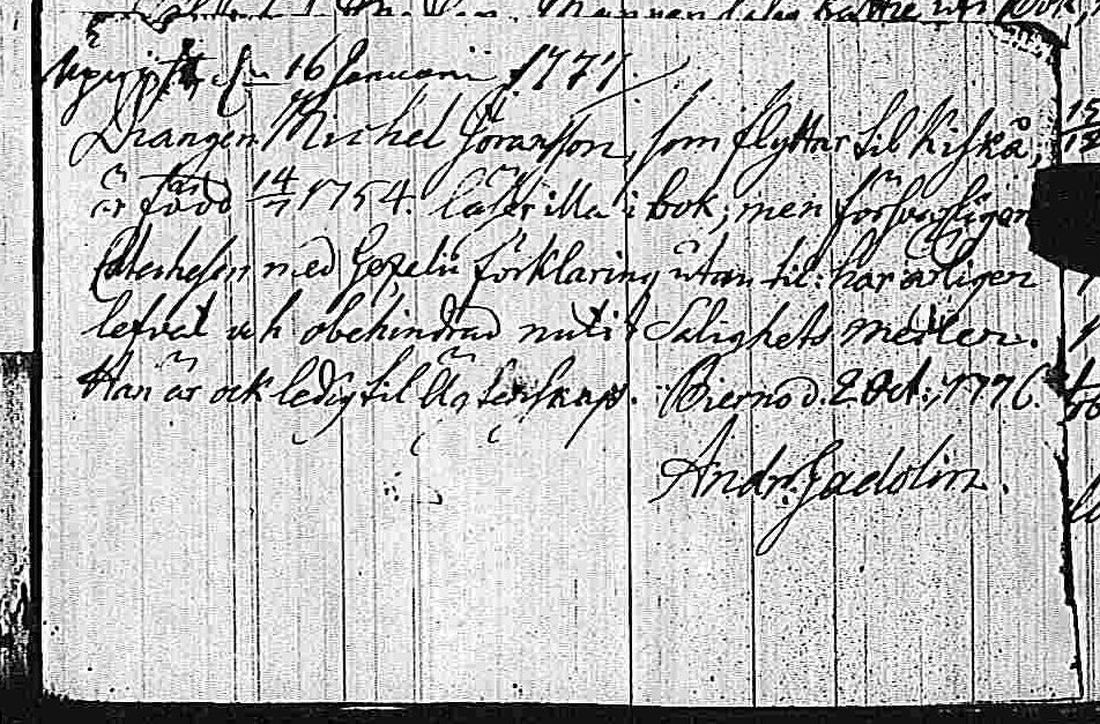 16 Januarii 1777.
Drängen Michel Göransson, som flyttar til Kiskå,
är född 14/7 1754. läser illa i bok; men förswarligen
Catechesen med Gezelii förklaring utan til: har ärligen
lefvat och obehindrad nutit Salighets medlen.
Han är ock ledig til Ägtenskap. Bierno d. 2 Oct: 1776.
And: Gadolin.